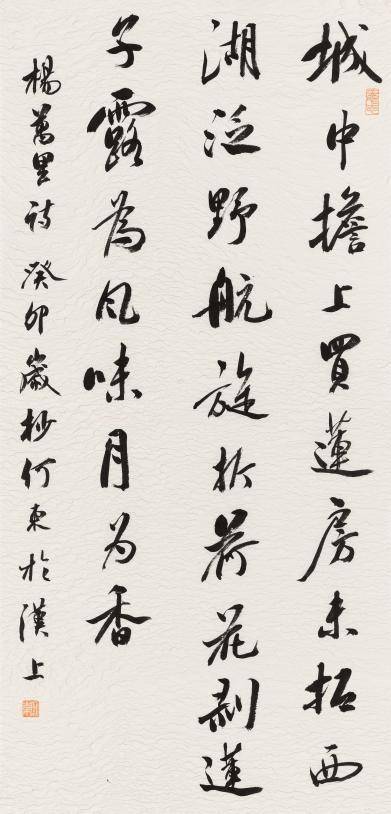 城中擔上買蓮房未抵西
湖泛野航旋折荷花剥蓮
子露為风味月为香
楊萬里詩癸卯歲杪何東於漢上